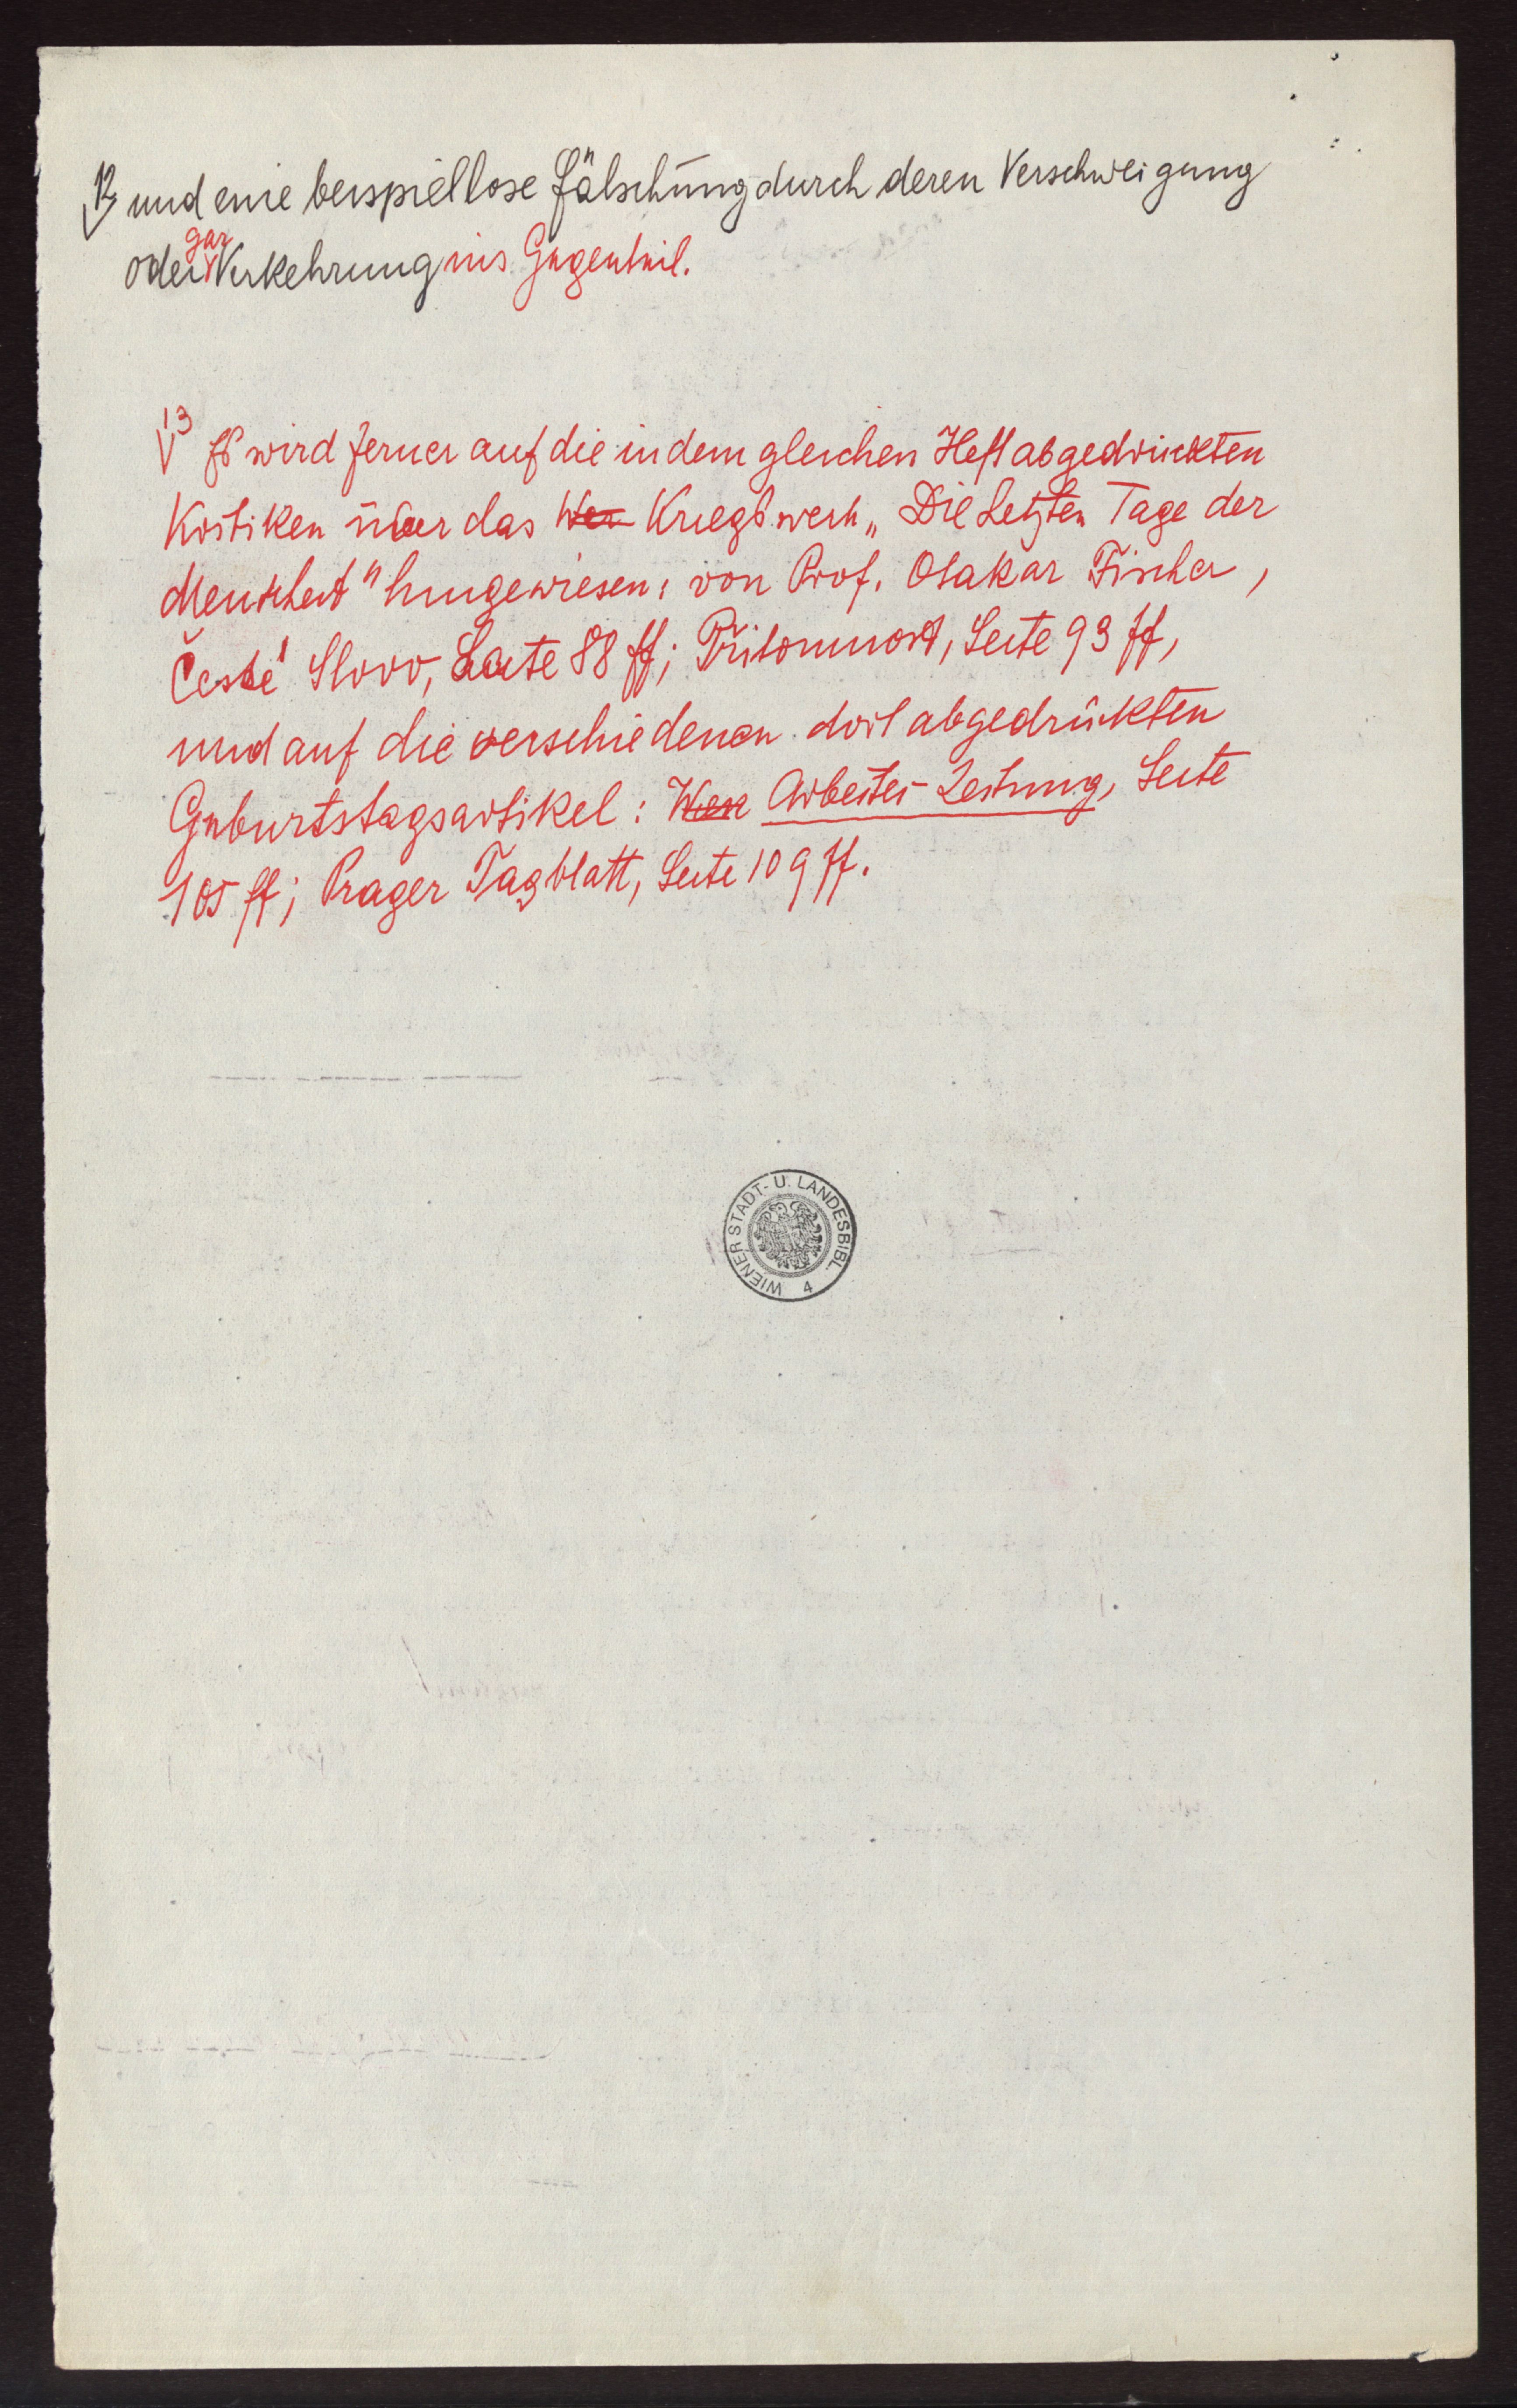 12 und eine beispiellose Fälschung durch deren Verschweigung
oder gar Verkehrung ins Gegenteil.
13 Es wird ferner auf die in dem gleichen Heft abgedruckten
Kritiken über das Wer Kriegswerk „Die Letzten Tage der
Menschheit" hingewiesen: von Prof. Otakar Fischer,
České Slovo, Seite 88 ff; Přítomnost, Seite 93 ff,
und auf die verschiedenen dort abgedruckten
Geburtstagsartikel: Wien Arbeiter-Zeitung, Seite
105 ff; Prager Tagblatt, Seite 109 ff.
WIENER STADT- U. LANDESBIBL. 4